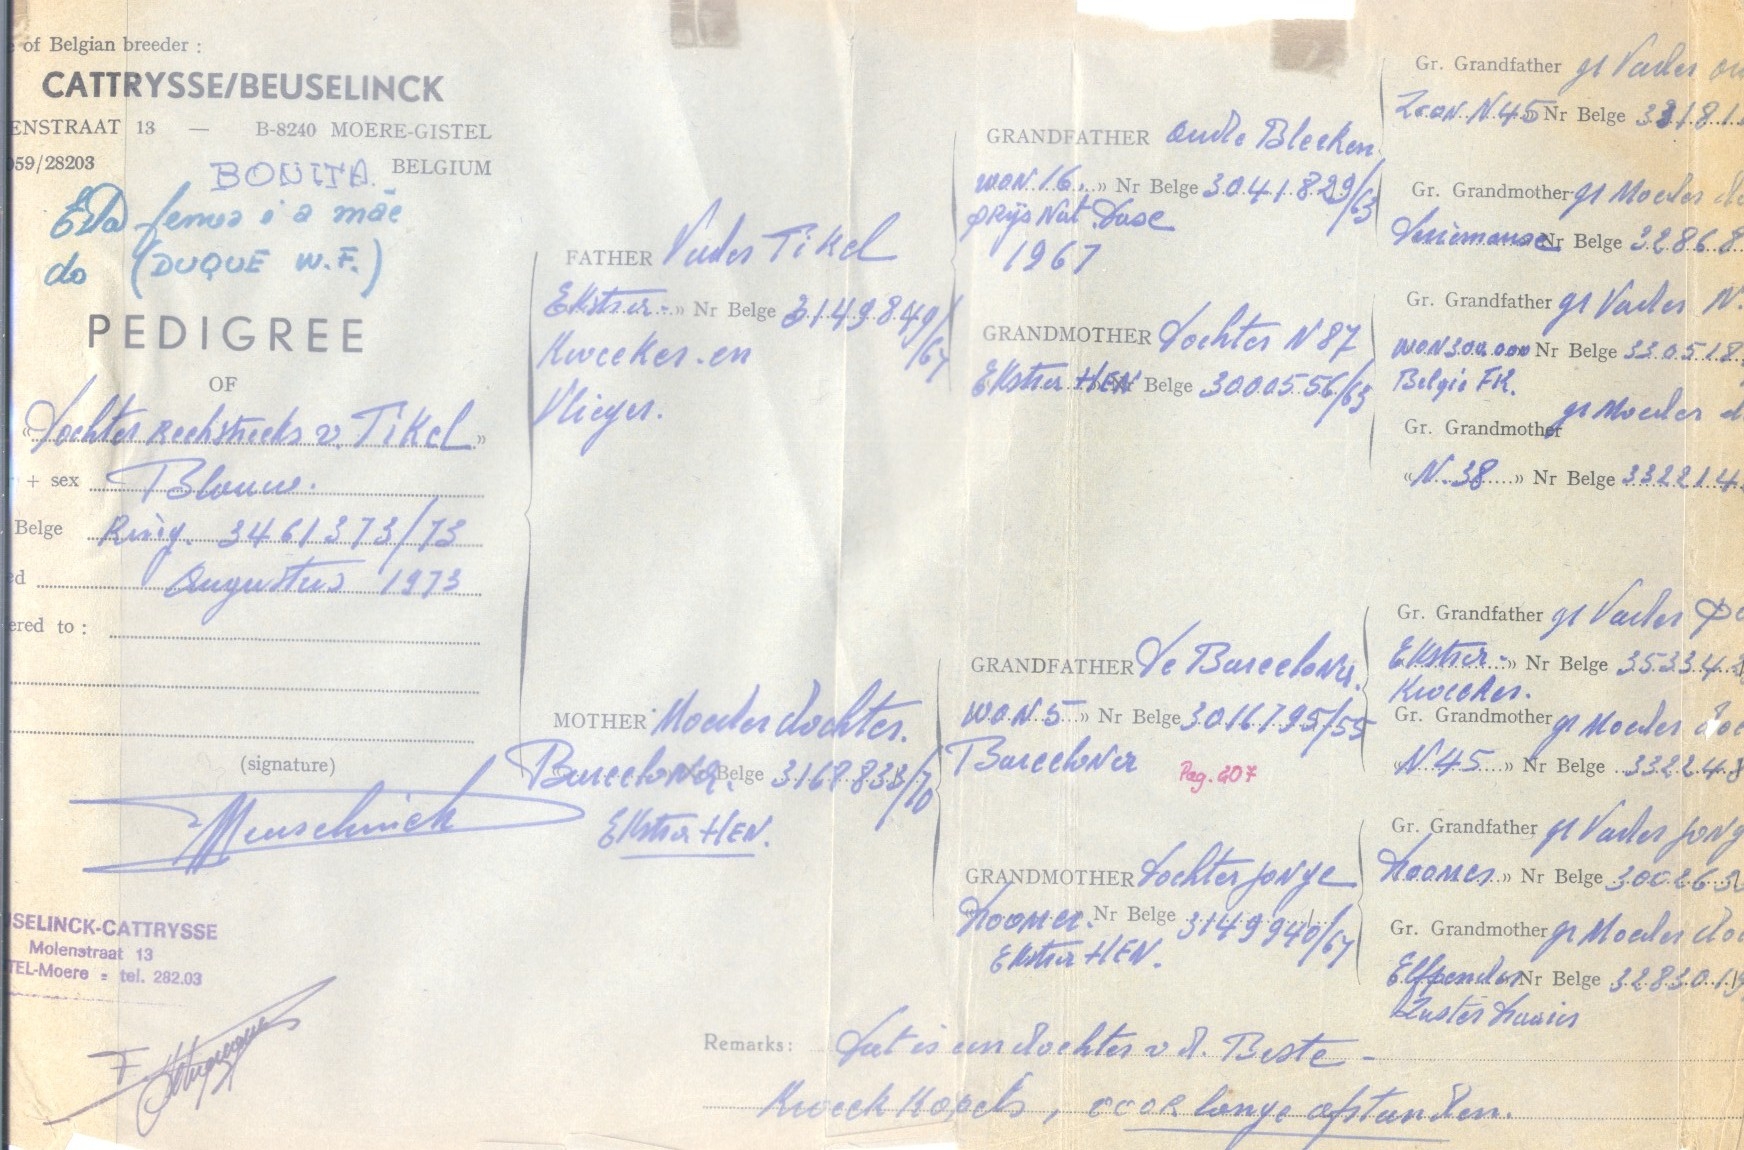 of Belgian breeder :
CATTRYSSE/BEUSELINCK
ENSTRAAT 13 — B-8240 MOERE-GISTEL
059/28203 BELGIUM
BONITA
Esta femea é a mãe
do (DUQUE W.F.)
PEDIGREE
OF
«Dochter rechstreeks v. Tikel»
+ sex Blauw.
Belge Ring. 3461373/73
ed Augustus 1973
ered to :
(signature)
SELINCK-CATTRYSSE
Molenstraat 13
TEL-Moere - tel. 282.03
FATHER Vader Tikel
Ekstra - » Nr Belge 3149849/67
Kweeker en
Vlieger.
MOTHER Moeder dochter.
Barcelona. Belge 3168833/70
Ekstra HEN.
GRANDFATHER Oude Bleeken.
WON 16. » Nr Belge 3041829/63
prijs Nat. Dase
1967
GRANDMOTHER Dochter N 87
Ekstra HEN Nr Belge 3000556/63
GRANDFATHER De Barcelona.
WON 5 » Nr Belge 3016795/55
Barcelona
Pag. 207
GRANDMOTHER Dochter jonge
Nr Belge 3149940/67
Ekstra HEN.
Gr. Grandfather gr Vader
Zoon N 45 Nr Belge 33181
Gr. Grandmother gr Moeder
Nr Belge 32868
Gr. Grandfather gr Vader N.
WON 300.000 Nr Belge 330518
Belgie FR.
gr Moeder
Gr. Grandmother
«N. 38 » Nr Belge 332214
Gr. Grandfather gr Vader
Ekstra - » Nr Belge 353342
Kweeker.
Gr. Grandmother gr Moeder
«N 45 » Nr Belge 332248
Gr. Grandfather gr Vader jong
» Nr Belge 300263
Gr. Grandmother gr Moeder
Nr Belge 328301
Zuster
Remarks: Dat is een dochter v d. Beste -
Kweek Kopels, voor lange afstanden.